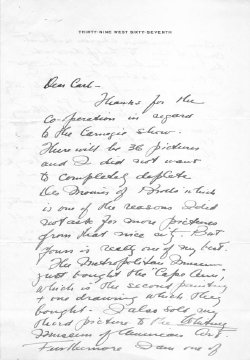 THIRTY-NINE WEST SIXTY-SEVENTH
Dear Carl-
Thanks for the
Co-operation in regard
to the Carnegie show.
There will be 36 pictures
and I did not want
to completely deplete
the Province of which
is one of the reasons I did
not ask for more pictures
from that nice city. But
yours is really one of my best.
The Metropolitan Museum
just bought the "Cape Ann",
which is the second painting
+ one drawing which they
bought. I also sold my
third picture to the Whitney
Museum of American Art
Furthermore I am one of